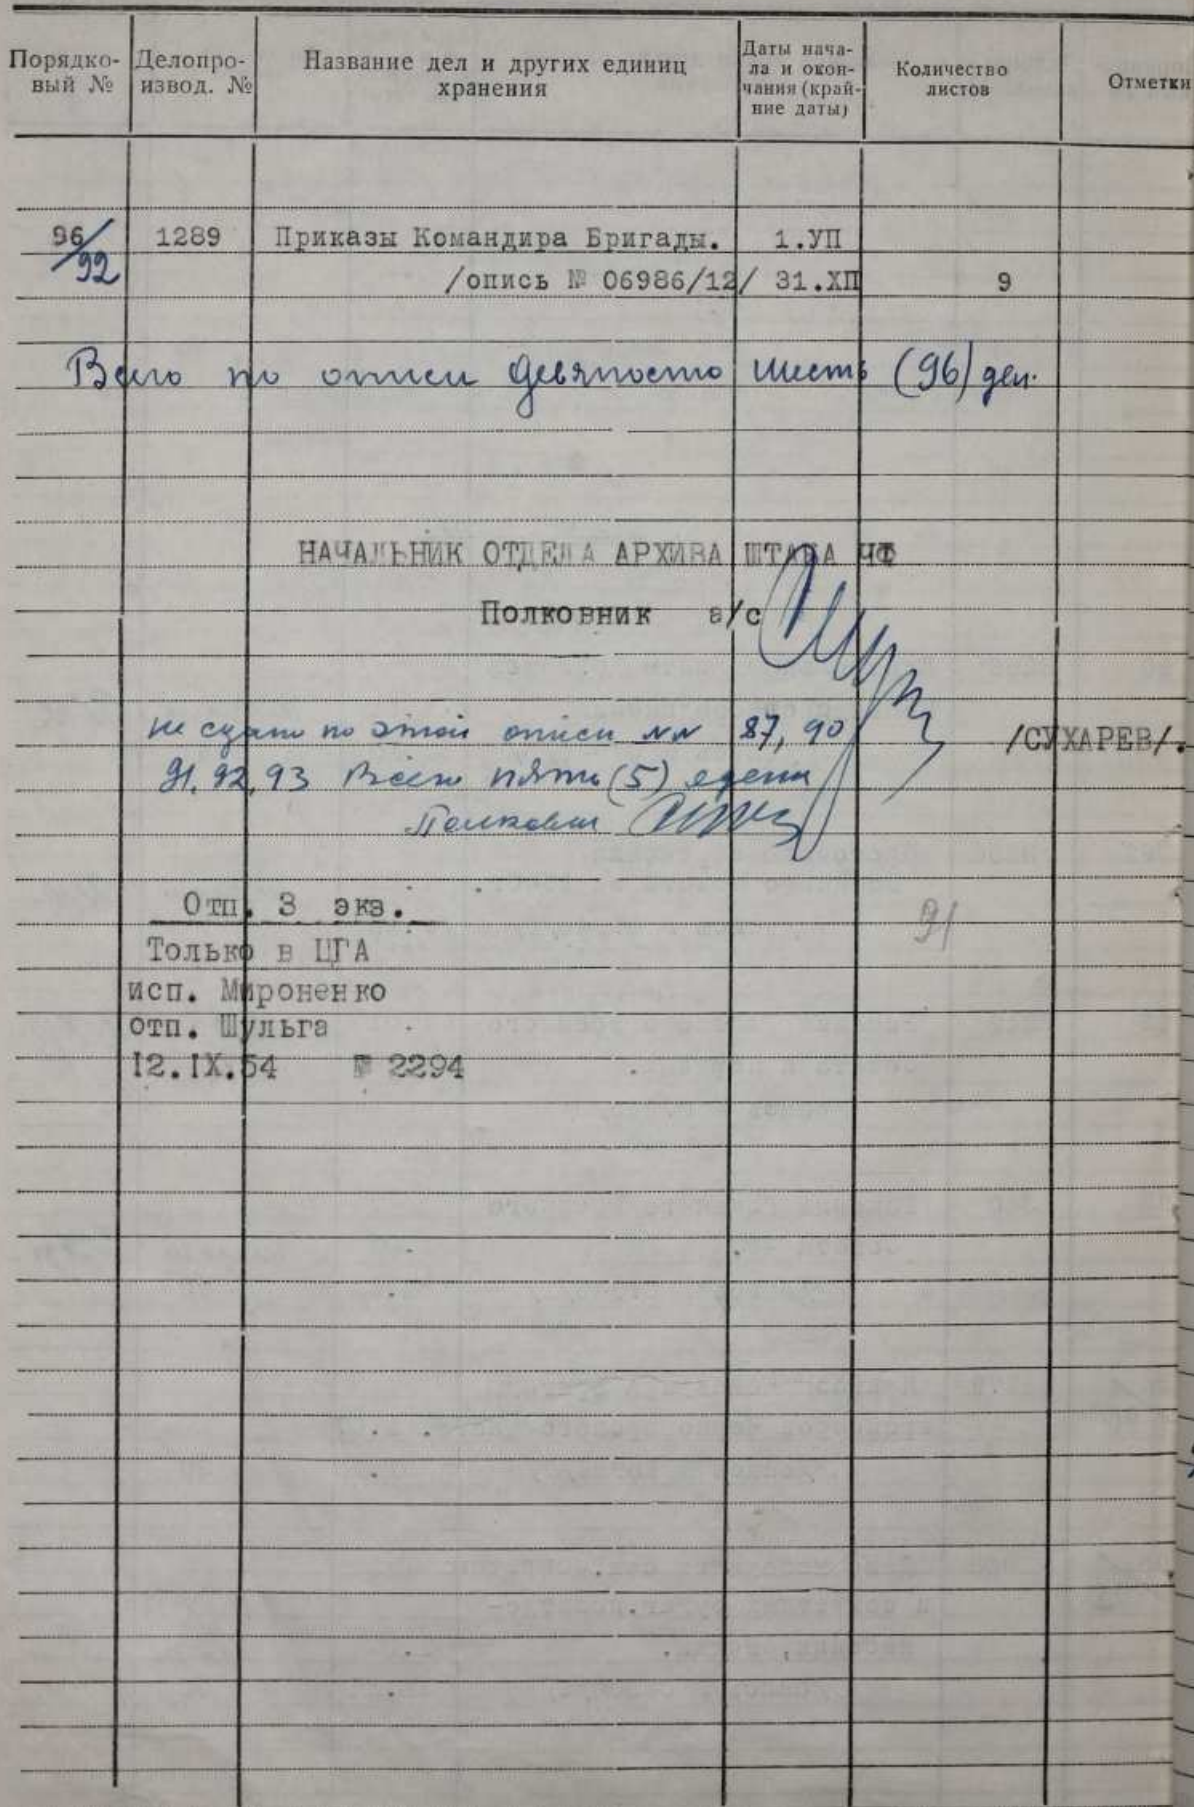 Порядко-
вый №
Делопро-
извод. №
Название дел и других единиц
хранения
Даты нача-
ла и окон-
чания (край-
ние даты)
Количество
листов
Отметки
96/92 1289 Приказы Командира Бригады. 1.УП
/опись № 06986/12/ 31.ХП 9
Всего по описи девяносто шесть (96) дел.
НАЧАЛЬНИК ОТДЕЛА АРХИВА ШТАБА ЧФ
Полковник а/с
/СУХАРЕВ/.
не сдано по этой описи NN 87, 90
91, 92, 93 Всего пять (5) един
Полковник
Отп. 3 экз.
91
Только в ЦГА
исп. Мироненко
отп. Шульга
12.IX.54 № 2294